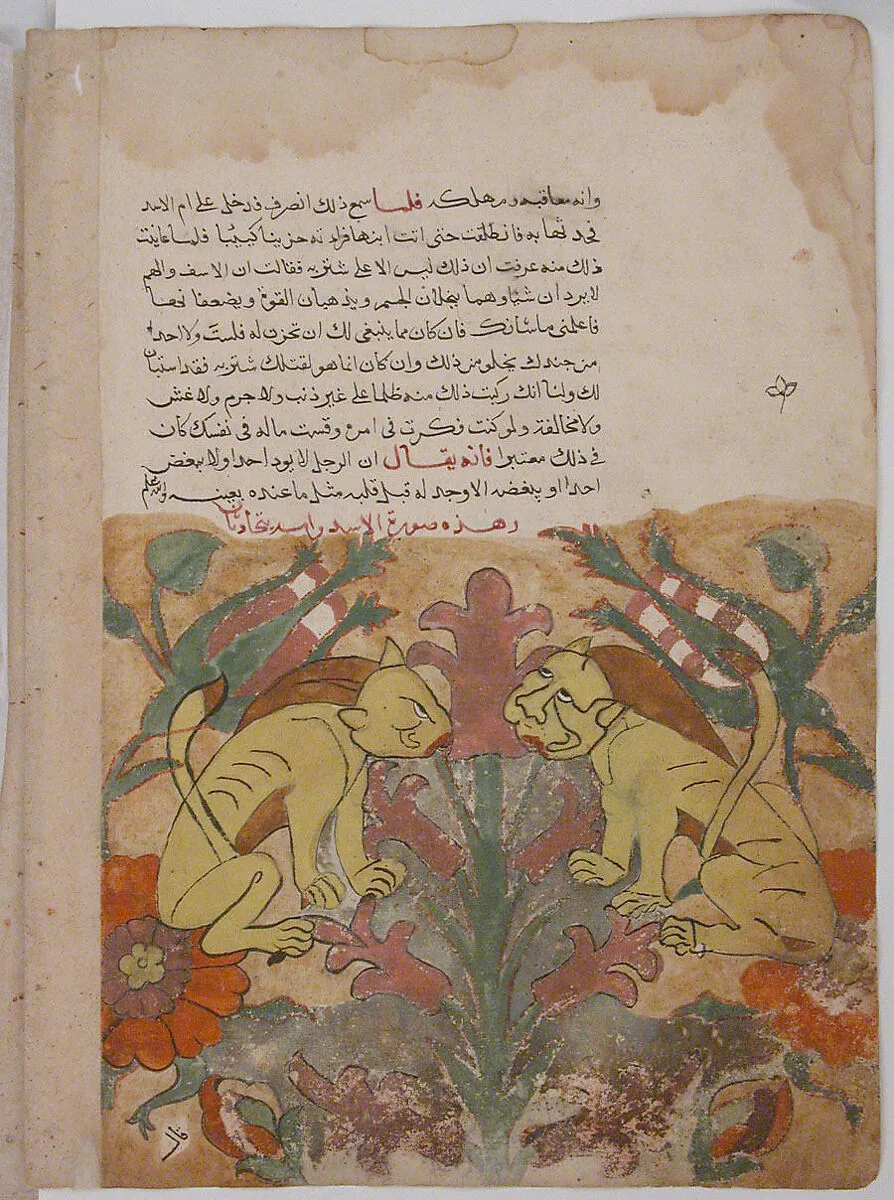 وانه معاقبه ومهلكه فلما سمع ذلك انصرف فدخل على ام الاسد
فحدثها به فانطلقت حتى اتت ابنها فراته حزينا كييبا فلما عاينت
ذلك منه عرفت ان ذلك ليس الا على شتربه فقالت ان الاسف والهم
لا يردان شيا وهما ينحلان الجسم ويذهبان القوة ويضعفانها
فاعلمني ما شانك فان كان مما ينبغي لك ان تحزن له فلست ولا احدا
من جندك يخلو من ذلك وان كان انما هو لقتلك شتربه فقد استبان
لك ولنا انك ركبت ذلك منه ظلما على غير ذنب ولا جرم ولا غش
ولا مخالفة ولو كنت فكرت في امره وقست ماله في نفسك كان
في ذلك معتبرا فانه يقال ان الرجل لا يود احدا ولا يبغض
احدا او يبغضه الا وجد له قبل قلبه مثل ما عنده بعينه والله اعلم
وهذه صورة الاسد وامه يتحاوران
قال